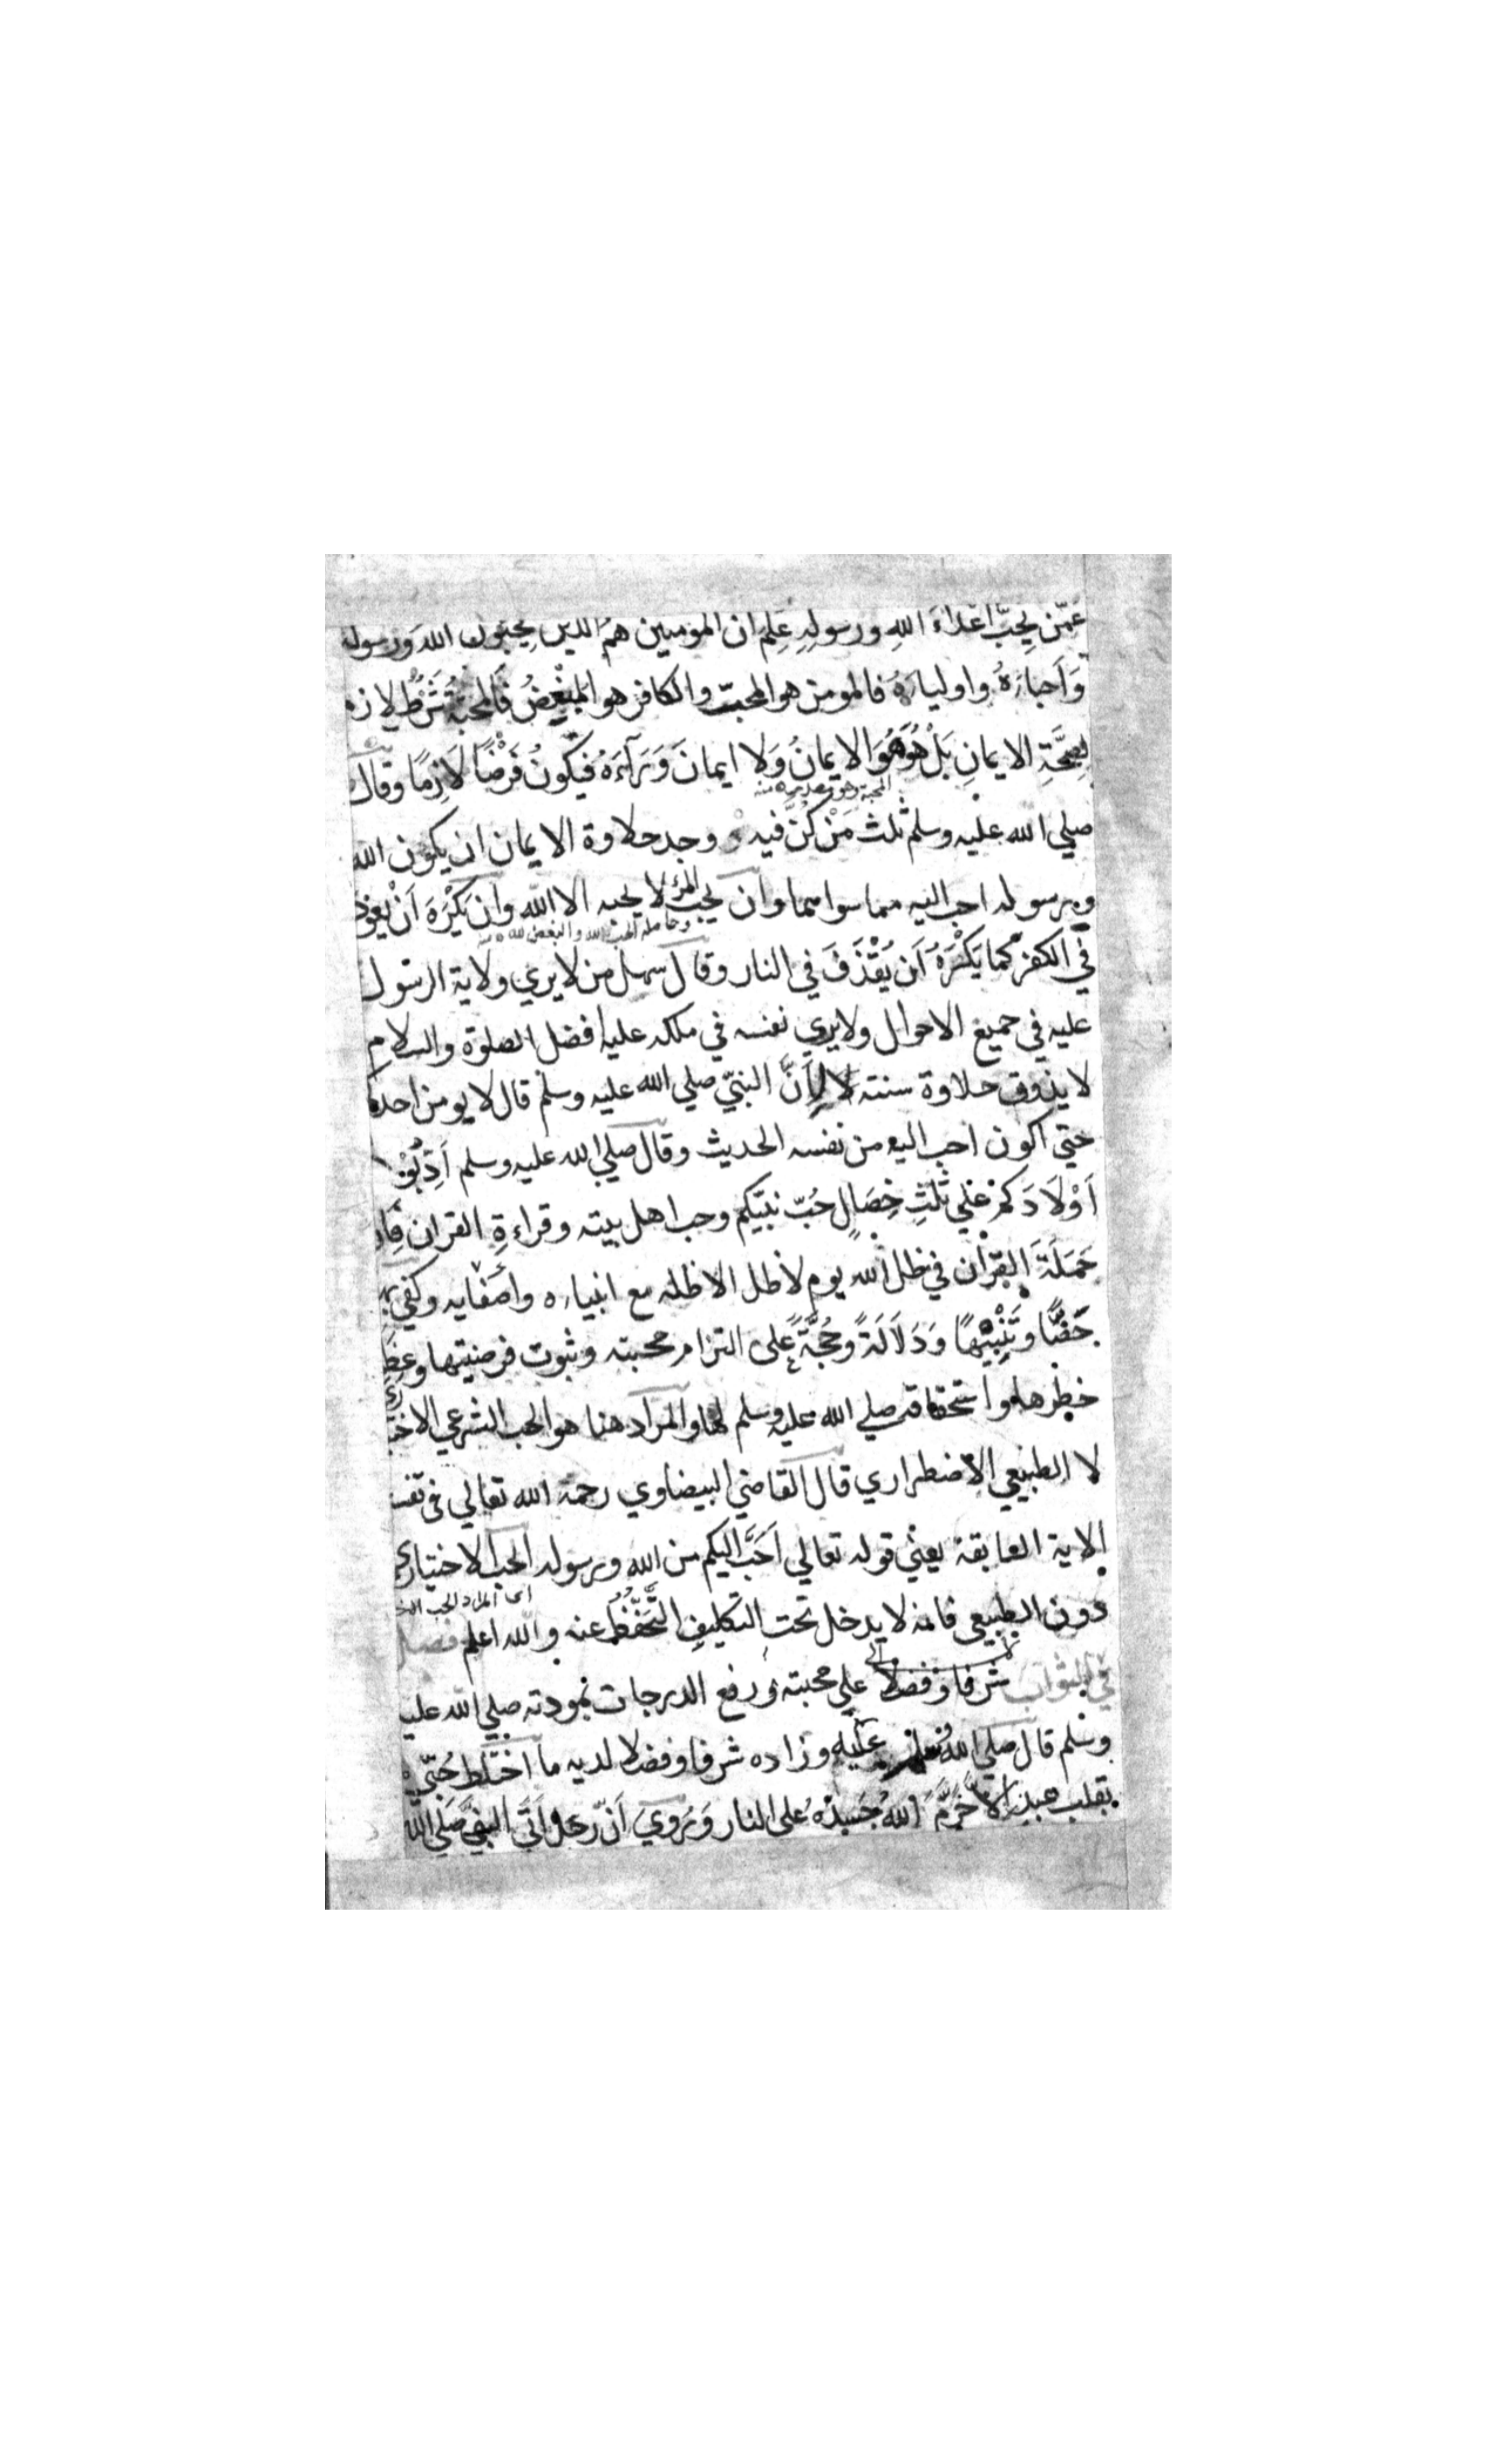 عَمّن يحِبّ اعداءَ اللهِ ورسولِهِ عُلِمَ ان المومنين هم الذين يحبون الله ورسوله
وَأحباءَهُ واولياءَهُ فالمومن هو المحبّ والكافر هو المبْغِضُ فَالمحبّةُ شَرْطٌ لازم
لِصِحَّةِ الايمانِ بَلْ هُوَ هُوَ الايمانُ وَلا ايمانَ وَرَآءَهُ فيكونُ فَرْضًا لَازِمًا وقال
صلي الله عليه وسلم ثلث مَنْ كنّ فيه وجد حلاوة الايمان ان يكون الله
ورسوله احب اليه مما سواهما وان يحبّ المرءَ لا يحبه الا الله وان يَكْرَهَ اَنْ يعودَ
وحاصله الحب لله والبغض لله
في الكفر كما يَكْرَهُ اَن يُقْذَفَ في النار وقال سهل من لا يري ولاية الرسول
عليه في جميع الاحوال ولا يري نفسه في ملكه عليه افضل الصلوة والسلام
لا يذوق حلاوة سنته لِاَنَّ النبيّ صلي الله عليه وسلم قال لا يومن احدكم
حتي اكون احب اليه من نفسه الحديث وقال صلي الله عليه وسلم اَدِّبُوْا
اَوْلَادَكم علي ثلثِ خِصَالٍ حُبّ نبيّكم وحب اهل بيته وقراءةِ القران فان
حَمَلَةَ القرْان في ظل الله يوم لا ظل الا ظله مع انبياءه واصفيايه وكفي بهذا
حَضًّا وتَنْبِيْهًا وَدَلَالَةً وحُجَّةً على التزام محبته وثبوت فرضيتها وعظم
خطرها واستحقاقه صلي الله عليه وسلم لها والمراد هنا هو الحب الشرعي الاختياري
لا الطبيعي الاضطراري قال القاضي البيضاوي رحمة الله تعالي في تفسير
الاية السابقة يعني قوله تعالي اَحَبَّ اليكم من الله ورسوله الحب الاختياري
اى المراد الحب
دون الطبيعي فانه لا يدخل تحت التكليفِ التَّحَفُّظُ عنه والله اعلم فصل
في الثواب علي محبته ورفع الدرجات بمودته صلي الله عليه
وسلم قال صلي الله عليه وزاده شرفا وفضلا لديه ما اختلط حُبّي
بقلب عبد اِلاّ حَرَّمَ اللهُ جَسَدَهُ على النار وَيُروٰيَ اَنّ رجلا اَتَي النبيَّ صَلي الله